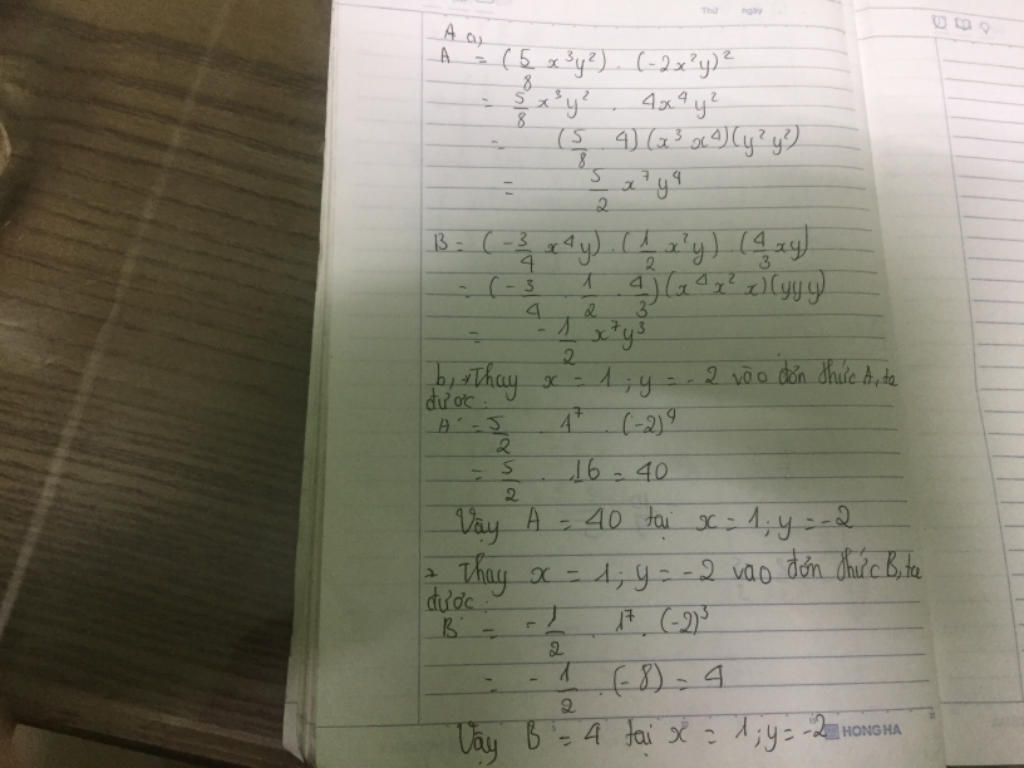 Thứ ngày
A a,
A = (5/8 x³y²) . (-2x²y)²
= 5/8 x³y² . 4x⁴y²
= (5/8 . 4)(x³ x⁴)(y² y²)
= 5/2 x⁷y⁴
B = (-3/4 x⁴y) . (1/2 x²y) (4/3 xy)
= (-3/4 . 1/2 . 4/3)(x⁴x² x)(yyy)
= -1/2 x⁷y³
b, + Thay x = 1 ; y = -2 vào đơn thức A, ta
được :
A = 5/2 . 1⁷ . (-2)⁴
= 5/2 . 16 = 40
Vậy A = 40 tại x = 1 ; y = -2
+ Thay x = 1 ; y = -2 vao đơn thức B, ta
được :
B = -1/2 . 1⁷ . (-2)³
= -1/2 . (-8) = 4
Vậy B = 4 tại x = 1 ; y = -2 HONG HA